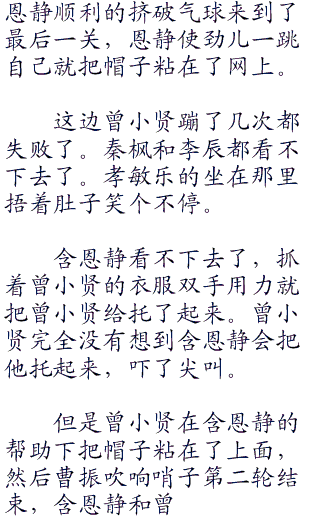 恩静顺利的挤破气球来到了
最后一关，恩静使劲儿一跳
自己就把帽子粘在了网上。
这边曾小贤蹦了几次都
失败了。秦枫和李辰都看不
下去了。孝敏乐的坐在那里
捂着肚子笑个不停。
含恩静看不下去了，抓
着曾小贤的衣服双手用力就
把曾小贤给托了起来。曾小
贤完全没有想到含恩静会把
他托起来，吓了尖叫。
但是曾小贤在含恩静的
帮助下把帽子粘在了上面，
然后曹振吹响哨子第二轮结
束，含恩静和曾